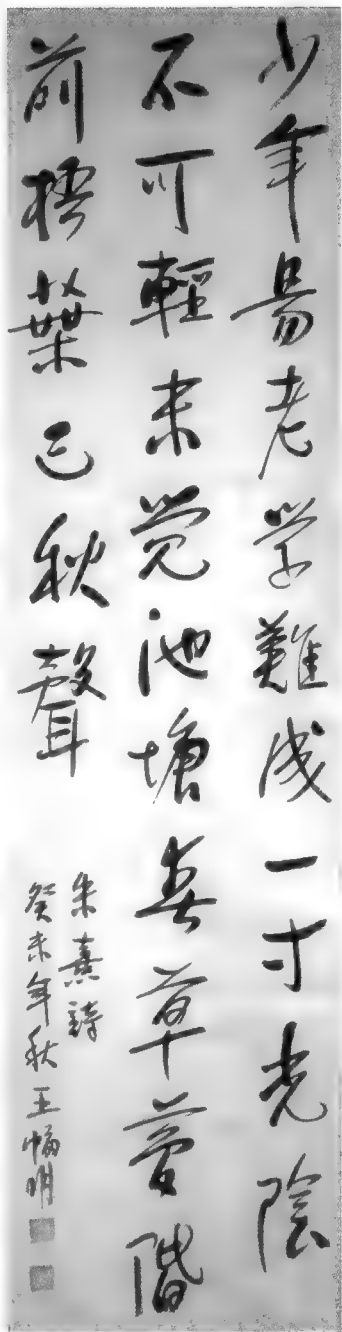 少年易老学難成一寸光陰
不可輕未覺池塘春草夢階
前梧葉已秋聲
朱熹詩
癸未年秋王幅明